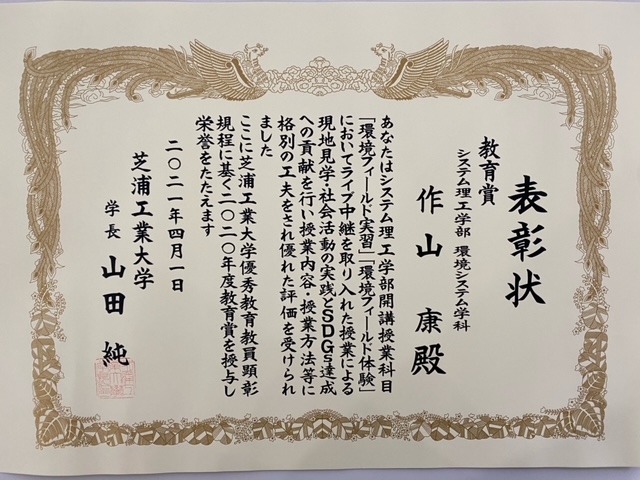 表彰状
教育賞
システム理工学部 環境システム学科
作山 康殿
あなたはシステム理工学部開講授業科目
「環境フィールド実習」「環境フィールド体験」
においてライブ中継を取り入れた授業による
現地見学・社会活動の実践とSDGs達成
への貢献を行い授業内容・授業方法等に
格別の工夫をされ優れた評価を受けられ
ました
ここに芝浦工業大学優秀教育教員顕彰
規程に基く二〇二〇年度教育賞を授与し
栄誉をたたえます
二〇二一年四月一日
芝浦工業大学
学長 山田 純